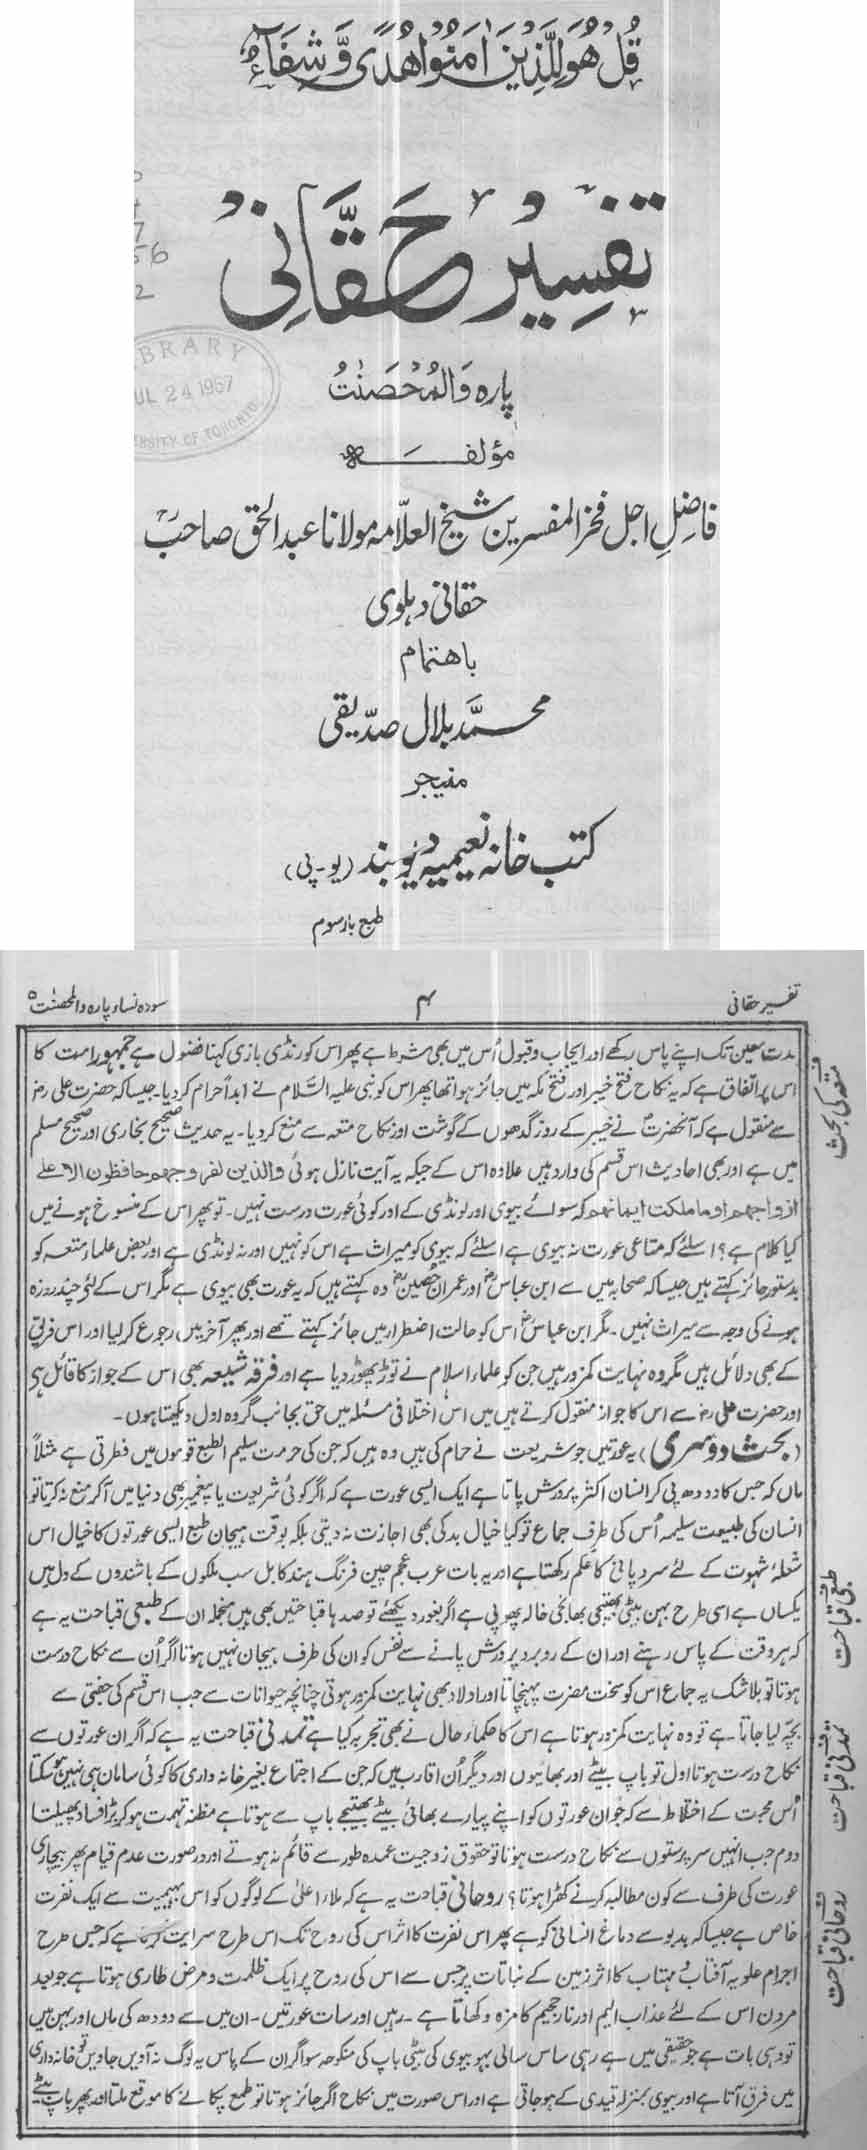 قُلْ هُوَ لِلَّذِينَ اٰمَنُوا هُدًى وَّشِفَآءٌ
تفسیر حقانی
پارہ والمحصنٰت
مؤلفہ
فاضلِ اجل فخر المفسرین شیخ العلامہ مولانا عبد الحق صاحبؒ
حقانی دہلوی
باہتمام
محمد بلال صدیقی
منیجر
کتب خانہ نعیمیہ دیوبند (یو-پی)
طبع بار سوم
LIBRARY
JUL 24 1967
UNIVERSITY OF TORONTO
تفسیر حقانی
۴
سورہ نساء پارہ والمحصنٰت ۵
مدت معین تک اپنے پاس رکھے اور ایجاب و قبول اُس میں بھی شرط ہے پھر اس کو رنڈی بازی کہنا فضول ہے جمہور امت کا
اس پر اتفاق ہے کہ یہ نکاح فتح خیبر اور فتح مکہ میں جائز ہوا تھا پھر اس کو نبی علیہ السّلام نے ابداً حرام کر دیا۔ جیسا کہ حضرت علی رض
سے منقول ہے کہ آنحضرتؐ نے خیبر کے روز گدھوں کے گوشت اور نکاح متعہ سے منع کر دیا۔ یہ حدیث صحیح بخاری اور صحیح مسلم
میں ہے اور بھی احادیث اس قسم کی وارد ہیں علاوہ اس کے جبکہ یہ آیت نازل ہوئی والذین لفروجہم حافظون الا علے
ازواجہم او ما ملکت ایمانہم کہ سوائے بیوی اور لونڈی کے اور کوئی عورت درست نہیں۔ تو پھر اس کے منسوخ ہونے میں
کیا کلام ہے؟ اسلئے کہ متاعی عورت نہ بیوی ہے اسلئے کہ بیوی کو میراث ہے اس کو نہیں اور نہ لونڈی ہے اور بعض علماء متعہ کو
بدستور جائز کہتے ہیں جیسا کہ صحابہ میں سے ابن عباسؓ اور عمران حصینؓ وہ کہتے ہیں کہ یہ عورت بھی بیوی ہے مگر اس کے لئے چند روزہ
ہونے کی وجہ سے میراث نہیں۔ مگر ابن عباسؓ اس کو حالت اضطرار میں جائز کہتے تھے اور پھر آخر میں رجوع کر لیا اور اس فریق
کے بھی دلائل ہیں مگر وہ نہایت کمزور ہیں جن کو علماء اسلام نے توڑ پھوڑ دیا ہے اور فرقہ شیعہ بھی اس کے جواز کا قائل ہی
اور حضرت علی رض سے اس کا جواز منقول کرتے ہیں میں اس اختلافی مسئلہ میں حق بجانب گروہ اول دیکھتا ہوں۔
(بحث دوسری) یہ عورتیں جو شریعت نے حرام کی ہیں وہ ہیں کہ جن کی حرمت سلیم الطبع قوموں میں فطرتی ہے مثلاً
ماں کہ جس کا دودھ پی کر انسان اکثر پرورش پاتا ہے ایک ایسی عورت ہے کہ اگر کوئی شریعت یا پیغمبر بھی دنیا میں آ کر منع نہ کرتا تو
انسان کی طبیعت سلیمہ اُس کی طرف جماع تو کیا خیال بد کی بھی اجازت نہ دیتی بلکہ بوقت ہیجان طبع ایسی عورتوں کا خیال اس
شعلۂ شہوت کے لئے سرد پانی کا حکم رکھتا ہے اور یہ بات عرب عجم چین فرنگ ہند کابل سب ملکوں کے باشندوں کے دل میں
یکساں ہے اسی طرح بہن بیٹی بھتیجی بھانجی خالہ پھوپی ہے اگر بغور دیکھئے تو صدہا قباحتیں بھی ہیں منجملہ ان کے طبعی قباحت یہ ہے
کہ ہر وقت کے پاس رہنے اور ان کے روبرو پرورش پانے سے نفس کو ان کی طرف ہیجان نہیں ہوتا اگر اُن سے نکاح درست
ہوتا تو بلاشک یہ جماع اس کو سخت مضرت پہنچاتا اور اولاد بھی نہایت کمزور ہوتی چنانچہ حیوانات سے جب اس قسم کی جفتی سے
بچہ لیا جاتا ہے تو وہ نہایت کمزور ہوتا ہے اس کا حکماء حال نے بھی تجربہ کیا ہے تمدنی قباحت یہ ہے کہ اگر ان عورتوں سے
نکاح درست ہوتا اول تو باپ بیٹے اور بھائیوں اور دیگر اُن اقارب میں کہ جن کے اجتماع بغیر خانہ داری کا کوئی سامان ہی نہیں ہو سکتا
اُس محبت کے اختلاط سے کہ جو ان عورتوں کو اپنے پیارے بھائی بیٹے بھتیجے باپ سے ہوتا ہے مظنہ تہمت ہو کر بڑا فساد پھیلتا
دوم جب انہیں سرپرستوں سے نکاح درست ہوتا تو حقوق زوجیت عمدہ طور سے قائم نہ ہوتے اور در صورت عدم قیام پھر بیچاری
عورت کی طرف سے کون مطالبہ کرنے کھڑا ہوتا؟ روحانی قباحت یہ ہے کہ ملاء اعلیٰ کے لوگوں کو اس بہیمیت سے ایک نفرت
خاص ہے جیسا کہ بدبو سے دماغ انسانی کو ہے پھر اس نفرت کا اثر اس کی روح تک اس طرح سرایت کرتا ہے کہ جس طرح
اجرام علویہ آفتاب و مہتاب کا اثر زمین کے نباتات پر جس سے اس کی روح پر ایک ظلمت و مرض طاری ہوتا ہے جو بعد
مردن اس کے لئے عذاب الیم اور نار جحیم کا مزہ دکھاتا ہے۔ رہیں اور سات عورتیں۔ ان میں سے دودھ کی ماں اور بہن میں
تو وہی بات ہے جو حقیقی میں ہے رہی ساس سالی بہو بیوی کی بیٹی باپ کی منکوحہ سو اگر ان کے پاس یہ لوگ نہ آویں جاویں تو خانہ داری
میں فرق آتا ہے اور بیوی بمنزلہ قیدی کے ہو جاتی ہے اور اس صورت میں نکاح اگر جائز ہوتا تو طمع پکانے کا موقع ملتا اور پھر باپ بیٹے
متعہ کی بحث
طبعی قباحت
تمدنی قباحت
روحانی قباحت